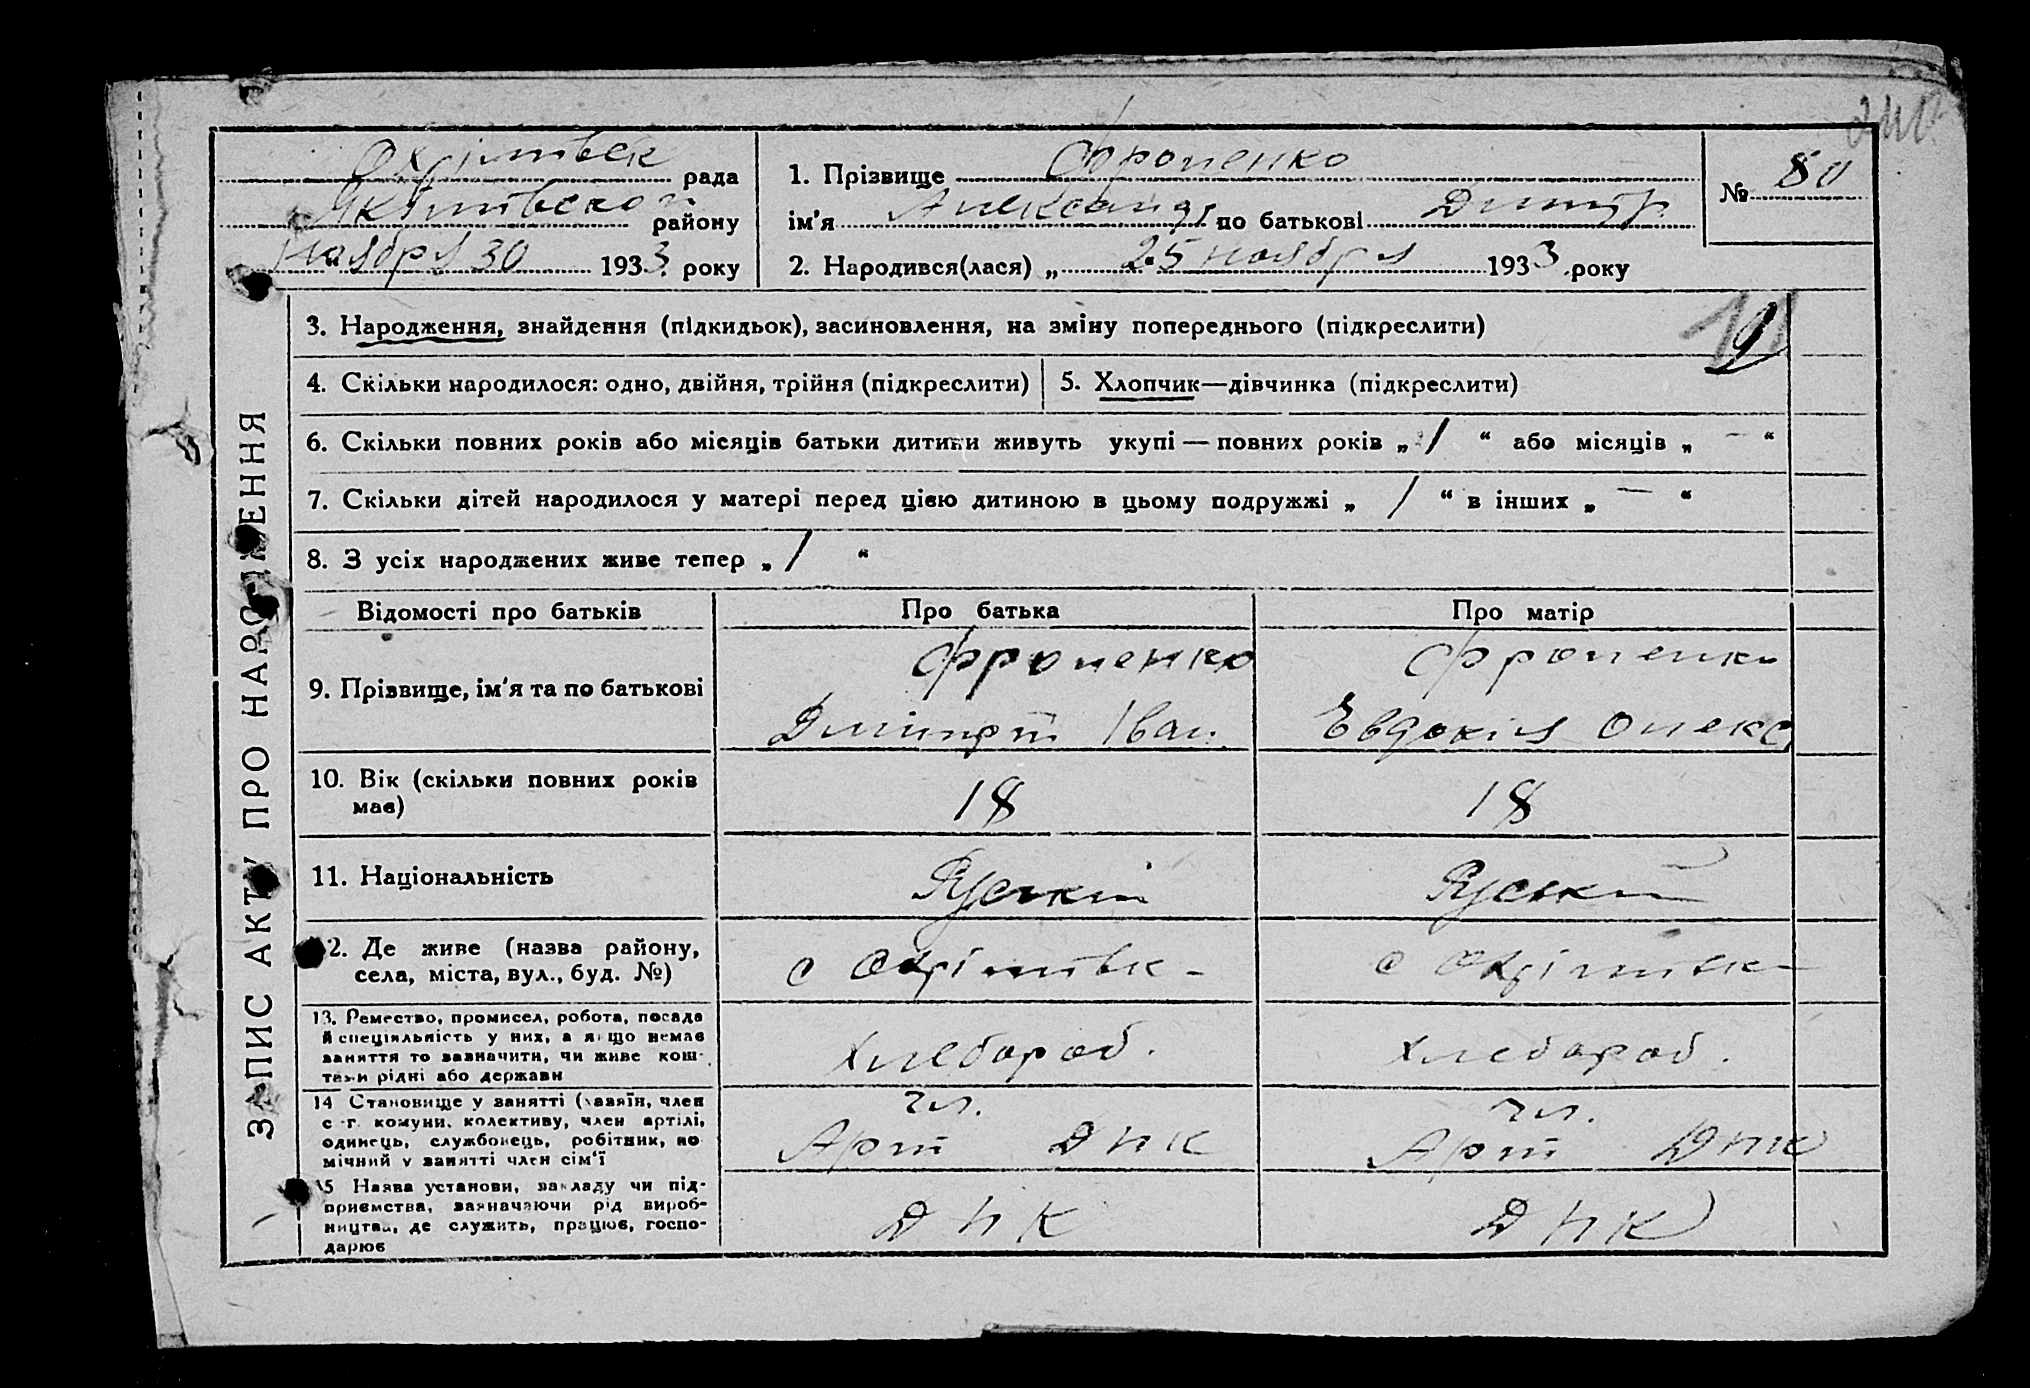 Охрімівск рада
Якимівской району
Ноября 30 1933 року
1. Прізвище Фроменко
ім'я Александр по батькові Дмитр.
2. Народився(лася) „ 25 ноября 1933 року
№ 80
3. Народження, знайдення (підкидьок), засиновлення, на зміну попереднього (підкреслити)
9
4. Скільки народилося: одно, двійня, трійня (підкреслити)
5. Хлопчик—дівчинка (підкреслити)
6. Скільки повних років або місяців батьки дитини живуть укупі — повних років „ 1 “ або місяців „ — “
7. Скільки дітей народилося у матері перед цією дитиною в цьому подружжі „ 1 “ в інших „ — “
8. З усіх народжених живе тепер „ 1 “
ЗАПИС АКТУ ПРО НАРОДЖЕННЯ
Відомості про батьків
Про батька
Про матір
9. Прізвище, ім'я та по батькові
Фроменко
Дмитрий Іван.
Фроменко
Евдокия Олекс
10. Вік (скільки повних років
має)
18
18
11. Національність
Руский
Руский
12. Де живе (назва району,
села, міста, вул., буд. №)
с Охрімівк-
с Охрімівк-
13. Ремество, промисел, робота, посада
й спеціяльність у них, а якщо немає
заняття то зазначити, чи живе кош-
тами рідні або держави
Хлебороб.
Хлебороб.
14 Становище у занятті (хазяїн, член
с.-г. комуни, колективу, член артілі,
одинець, службовець, робітник, по
мічний у занятті член сім'ї
чл.
Арт ДНК
чл.
Арт ДНК
15 Назва установи, закладу чи під-
приємства, зазначаючи рід вироб-
ництва, де служить, працює, госпо-
дарює
ДНК
ДНК